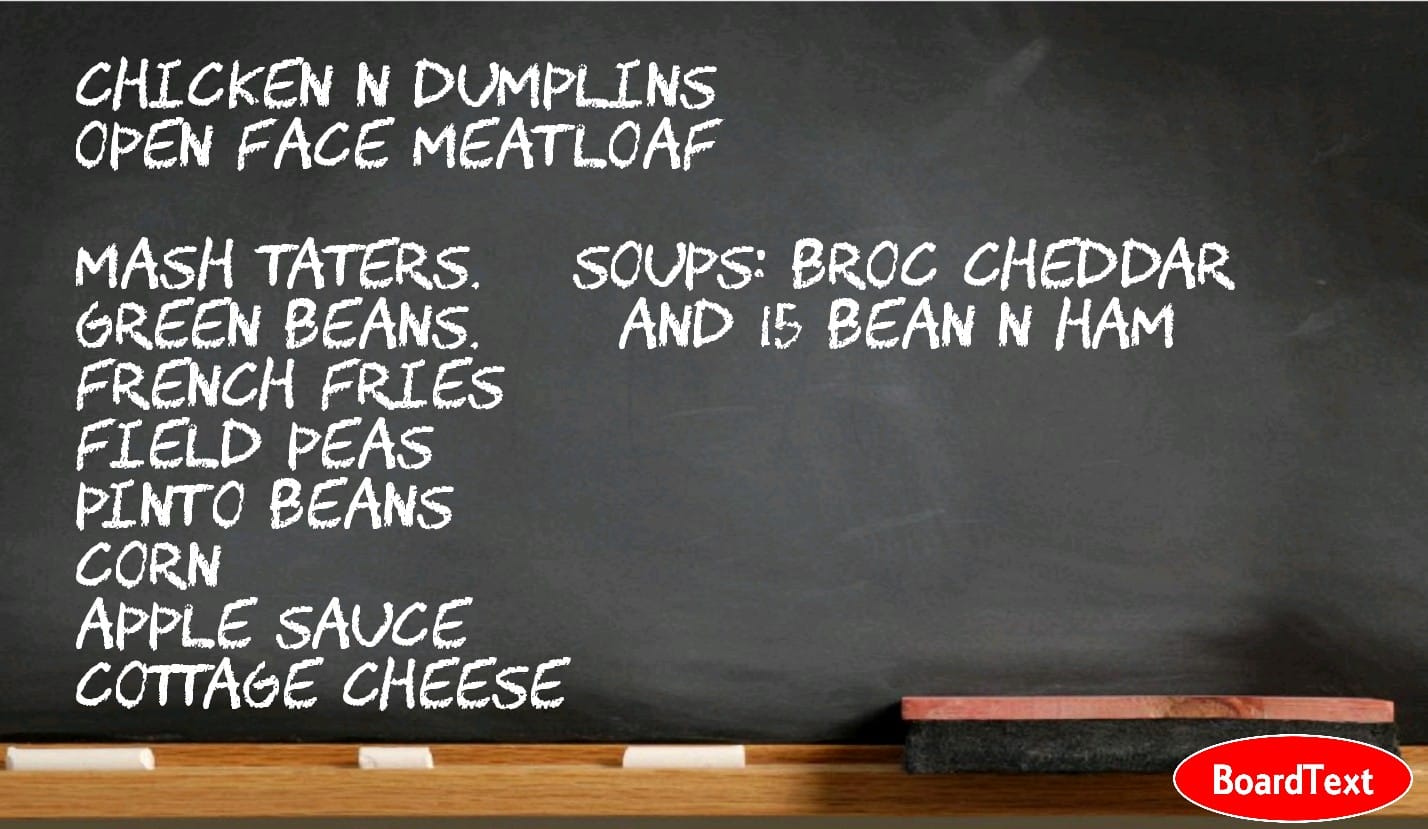 CHICKEN N DUMPLINS
OPEN FACE MEATLOAF
MASH TATERS. SOUPS: BROC CHEDDAR
GREEN BEANS. AND 15 BEAN N HAM
FRENCH FRIES
FIELD PEAS
PINTO BEANS
CORN
APPLE SAUCE
COTTAGE CHEESE
BoardText